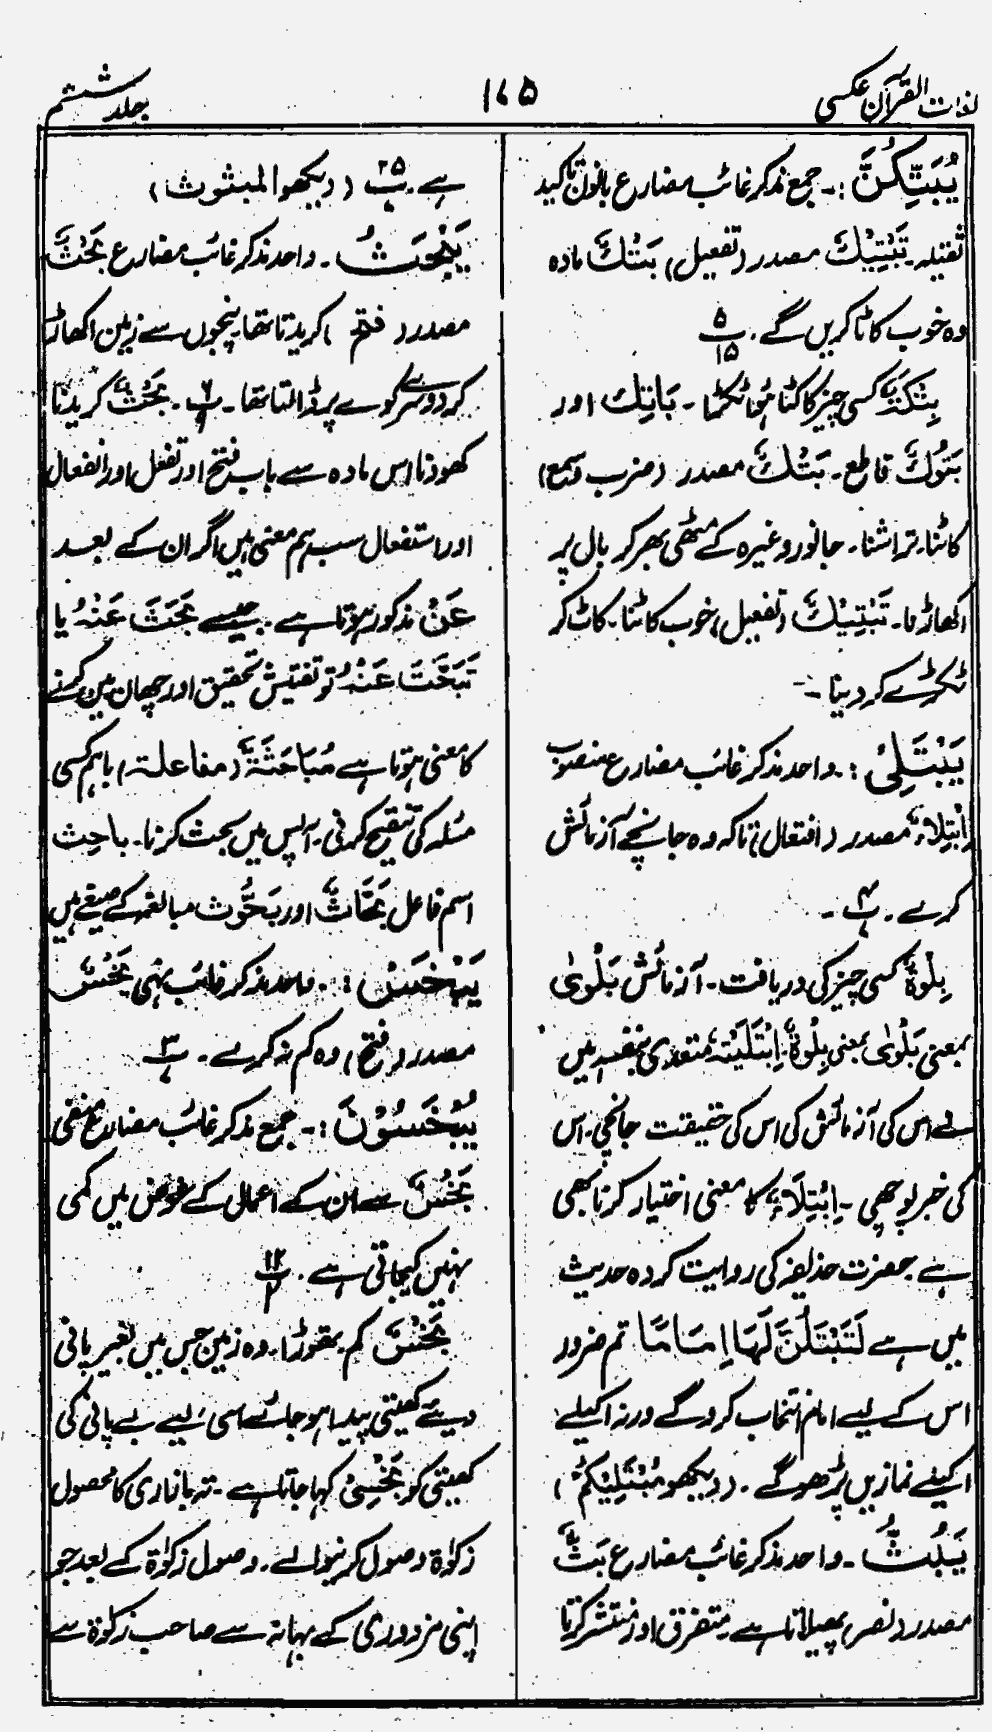 لغات القرآن عکسی
۱۶۵
جلد ششم
یُبَتِّکُنَّ :۔ جمع مذکر غائب مضارع بانون تاکید
ثقیلہ۔ تَبْتِیْکٌ مصدر (تفعیل) بَتْکٌ مادہ
وہ خوب کاٹا کریں گے۔ پ ۵ ۱۵
بِتْکَةٌ کسی چیز کا کٹا ہوا ٹکڑا ۔ بَاتِك اور
بَتُوْكٌ قاطع۔ بَتْكٌ مصدر (ضرب و سمع)
کاٹنا۔ تراشنا۔ جانور وغیرہ کے مٹھی بھر کر بال پر
اکھاڑنا۔ تَبْتِیْكٌ (تفعیل) خوب کاٹنا۔ کاٹ کر
ٹکڑے کر دینا ۔
یَبْتَلِیْ :۔ واحد مذکر غائب مضارع منصوب
اِبْتِلَاءٌ مصدر (افتعال) تاکہ وہ جانچے آزمائش
کرے ۔ پ ۴ ۔
بِلْوَةٌ کسی چیز کی دریافت۔ آزمائش بَلْوٰی
بمعنی بَلْوٰی بمعنی بِلْوَةٌ۔ اِبْتَلَیْتُهٗ متعدی بنفسہ میں
نے اس کی آزمائش کی اس کی حقیقت جانچی۔ اس
کی خبر پوچھی ۔ اِبْتِلَاءٌ کا معنی اختیار کرنا بھی
ہے حضرت حذیفہ کی روایت کردہ حدیث
میں ہے لَتَبْتَلُنَّ لَهَا اِمَامًا تم ضرور
اس کے لیے امام انتخاب کرو گے ورنہ اکیلے
اکیلے نمازیں پڑھو گے ۔ (دیکھو مُبْتَلِیْکُمْ)
یَبُثُّ ۔ واحد مذکر غائب مضارع بَثٌّ
مصدر (نصر) پھیلاتا ہے متفرق اور منتشر کرتا
ہے۔ پ ۲۵ (دیکھو المبثوث)
یَبْحَثُ ۔ واحد مذکر غائب مضارع بَحْثٌ
مصدر (فتح) کریدتا تھا۔ پنجوں سے زمین اکھاڑ
کر دوسرے کوے پر ڈالتا تھا ۔ پ ۶ ۔ بَحْثٌ کریدنا
کھودنا اس مادہ سے باب فتح اور تفعل اور انفعال
اور استفعال سب ہم معنی ہیں اگر ان کے بعد
عَنْ مذکور ہوتا ہے۔ جیسے بَحَثَ عَنْهُ یا
تَبَحَّثَ عَنْهُ تو تفتیش تحقیق اور چھان بین کرنے
کا معنی ہوتا ہے مُبَاحَثَةٌ (مفاعلة) باہم کسی
مسئلہ کی تنقیح کرنی۔ آپس میں بحث کرنا۔ باحِث
اسم فاعل بَحَّاثٌ اور بَحُّوث مبالغہ کے صیغے ہیں
یَبْخَسْ :۔ واحد مذکر غائب نہی بَخْسٌ
مصدر (فتح) وہ کم نہ کرے ۔ پ ۳
یُبْخَسُوْنَ :۔ جمع مذکر غائب مضارع منفی
بَخْسٌ سے ان کے اعمال کے عوض میں کمی
نہیں کیجاتی ہے ۔ پ ۱۲ ۲
بَخْسٌ کم۔ تھوڑا۔ وہ زمین جس میں بغیر پانی
دیئے کھیتی پیدا ہو جائے اسی لیے بے پانی کی
کھیتی کو بَخْسِیٌّ کہا جاتا ہے ۔ تہ بازاری کا محصول
زکوٰۃ وصول کرنیوالے۔ وصول زکوٰۃ کے بعد جو
اپنی مزدوری کے بہانہ سے صاحب زکوٰۃ سے